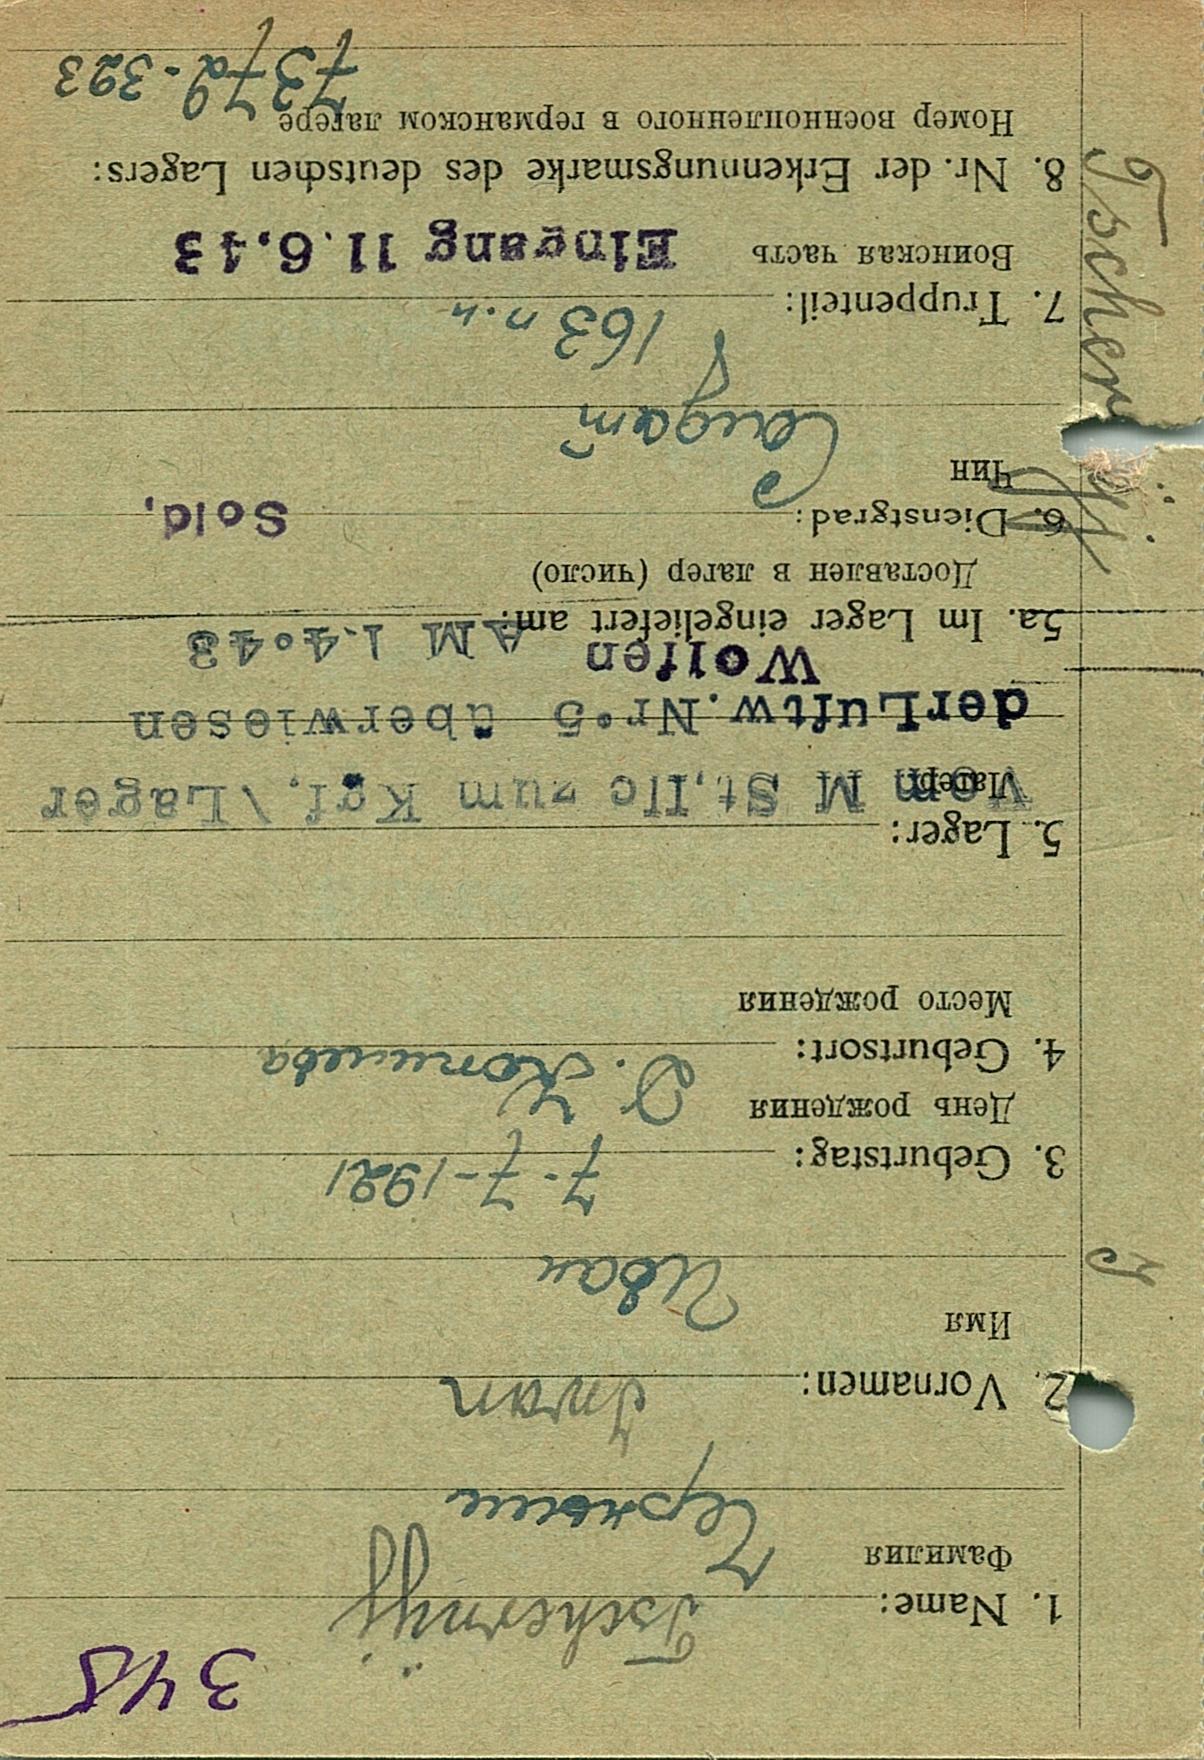 345
1. Name: Tschernÿj
Фамилия Черные
2. Vornamen: Iwan
Имя Иван
3. Geburtstag: 7-7-1921
День рождения
4. Geburtsort: Д.
Место рождения
5. Lager:
Лагерь
Vom M St, IIc zum Kgf. / Lager
der Luftw. Nr. 5 überwiesen
Wolfen
5a. Im Lager eingeliefert am: AM 1.4.43
Доставлен в лагер (число)
6. Dienstgrad: Sold,
Чин
7. Truppenteil: 163 п.п
Воинская часть Eingang 11.6.43
8. Nr. der Erkennungsmarke des deutschen Lagers:
Номер военнопленного в германском лагере
7372-323
Tscher ÿj